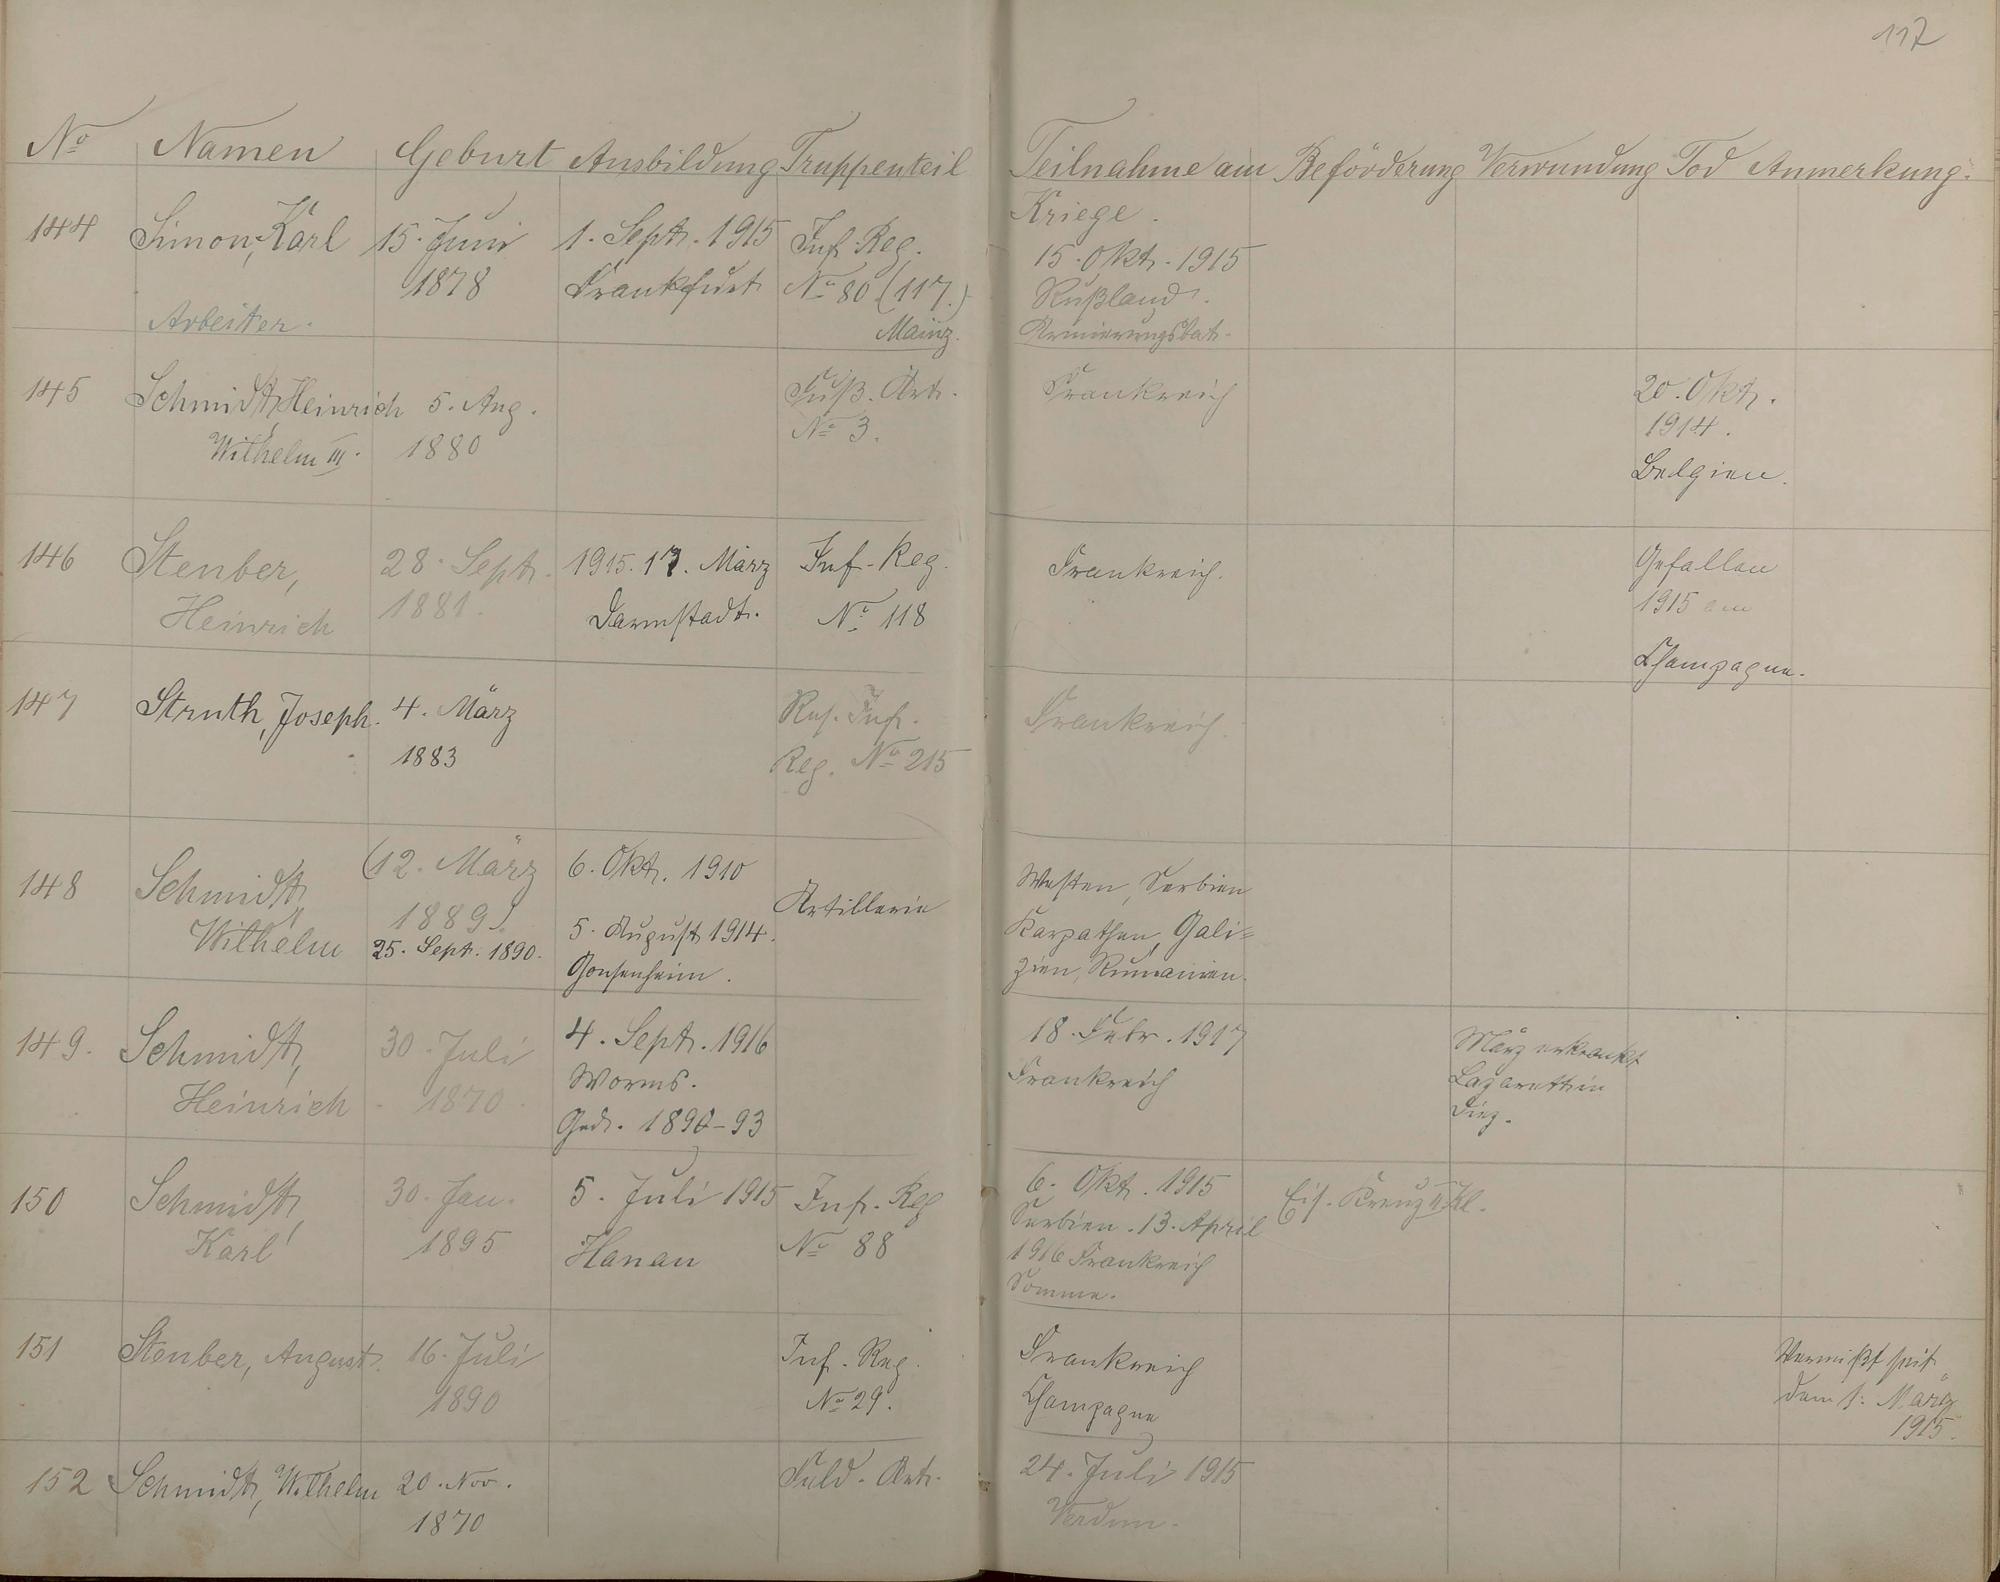 117
No Namen Geburt Ausbildung Truppenteil Teilnahme am Beförderung Verwundung Tod Anmerkung.
Kriege.
144 Simon, Karl 15. Juni 1. Sept. 1915 Inf. Reg. 15. Okt. 1915
1878 Frankfurt No 80 (117.) Rußland.
Arbeiter. Mainz. Armierungsbat.
145 Schmidt, Heinrich 5. Aug. Fuß. Art. Frankreich 20. Okt.
Wilhelm III. 1880 No 3. 1914.
Belgien.
146 Stenber, 28. Sept. 1915. 17. März Inf. Reg. Frankreich. Gefallen
Heinrich 1881. Darmstadt. No 118 1915
Champagne.
147 Struth, Joseph. 4. März Res. Inf. Frankreich.
1883 Reg. No 215
148 Schmidt, (12. März 6. Okt. 1910 Artillerie Westen, Serbien
Wilhelm 1889) 5. August 1914. Karpathen, Gali=
25. Sept. 1890. Gonsenheim. zien, Rumänien.
149. Schmidt, 30. Juli 4. Sept. 1916 18. Febr. 1917 März erkrankt
Heinrich 1870. Worms. Frankreich Lazarett in
Ged. 1890-93 Diez.
150 Schmidt, 30. Jan. 5. Juli 1915 Inf. Reg 6. Okt. 1915 Eis. Kreuz II Kl.
Karl 1895 Hanau No 88 Serbien. 13. April
1916 Frankreich
Somme.
151 Stenber, August. 16. Juli Inf. Reg. Frankreich Vermißt seit
1890 No 29. Champagne dem 1. März
1915.
152 Schmidt, Wilhelm 20. Nov. Feld. Art. 24. Juli 1915
1870 Verdun.